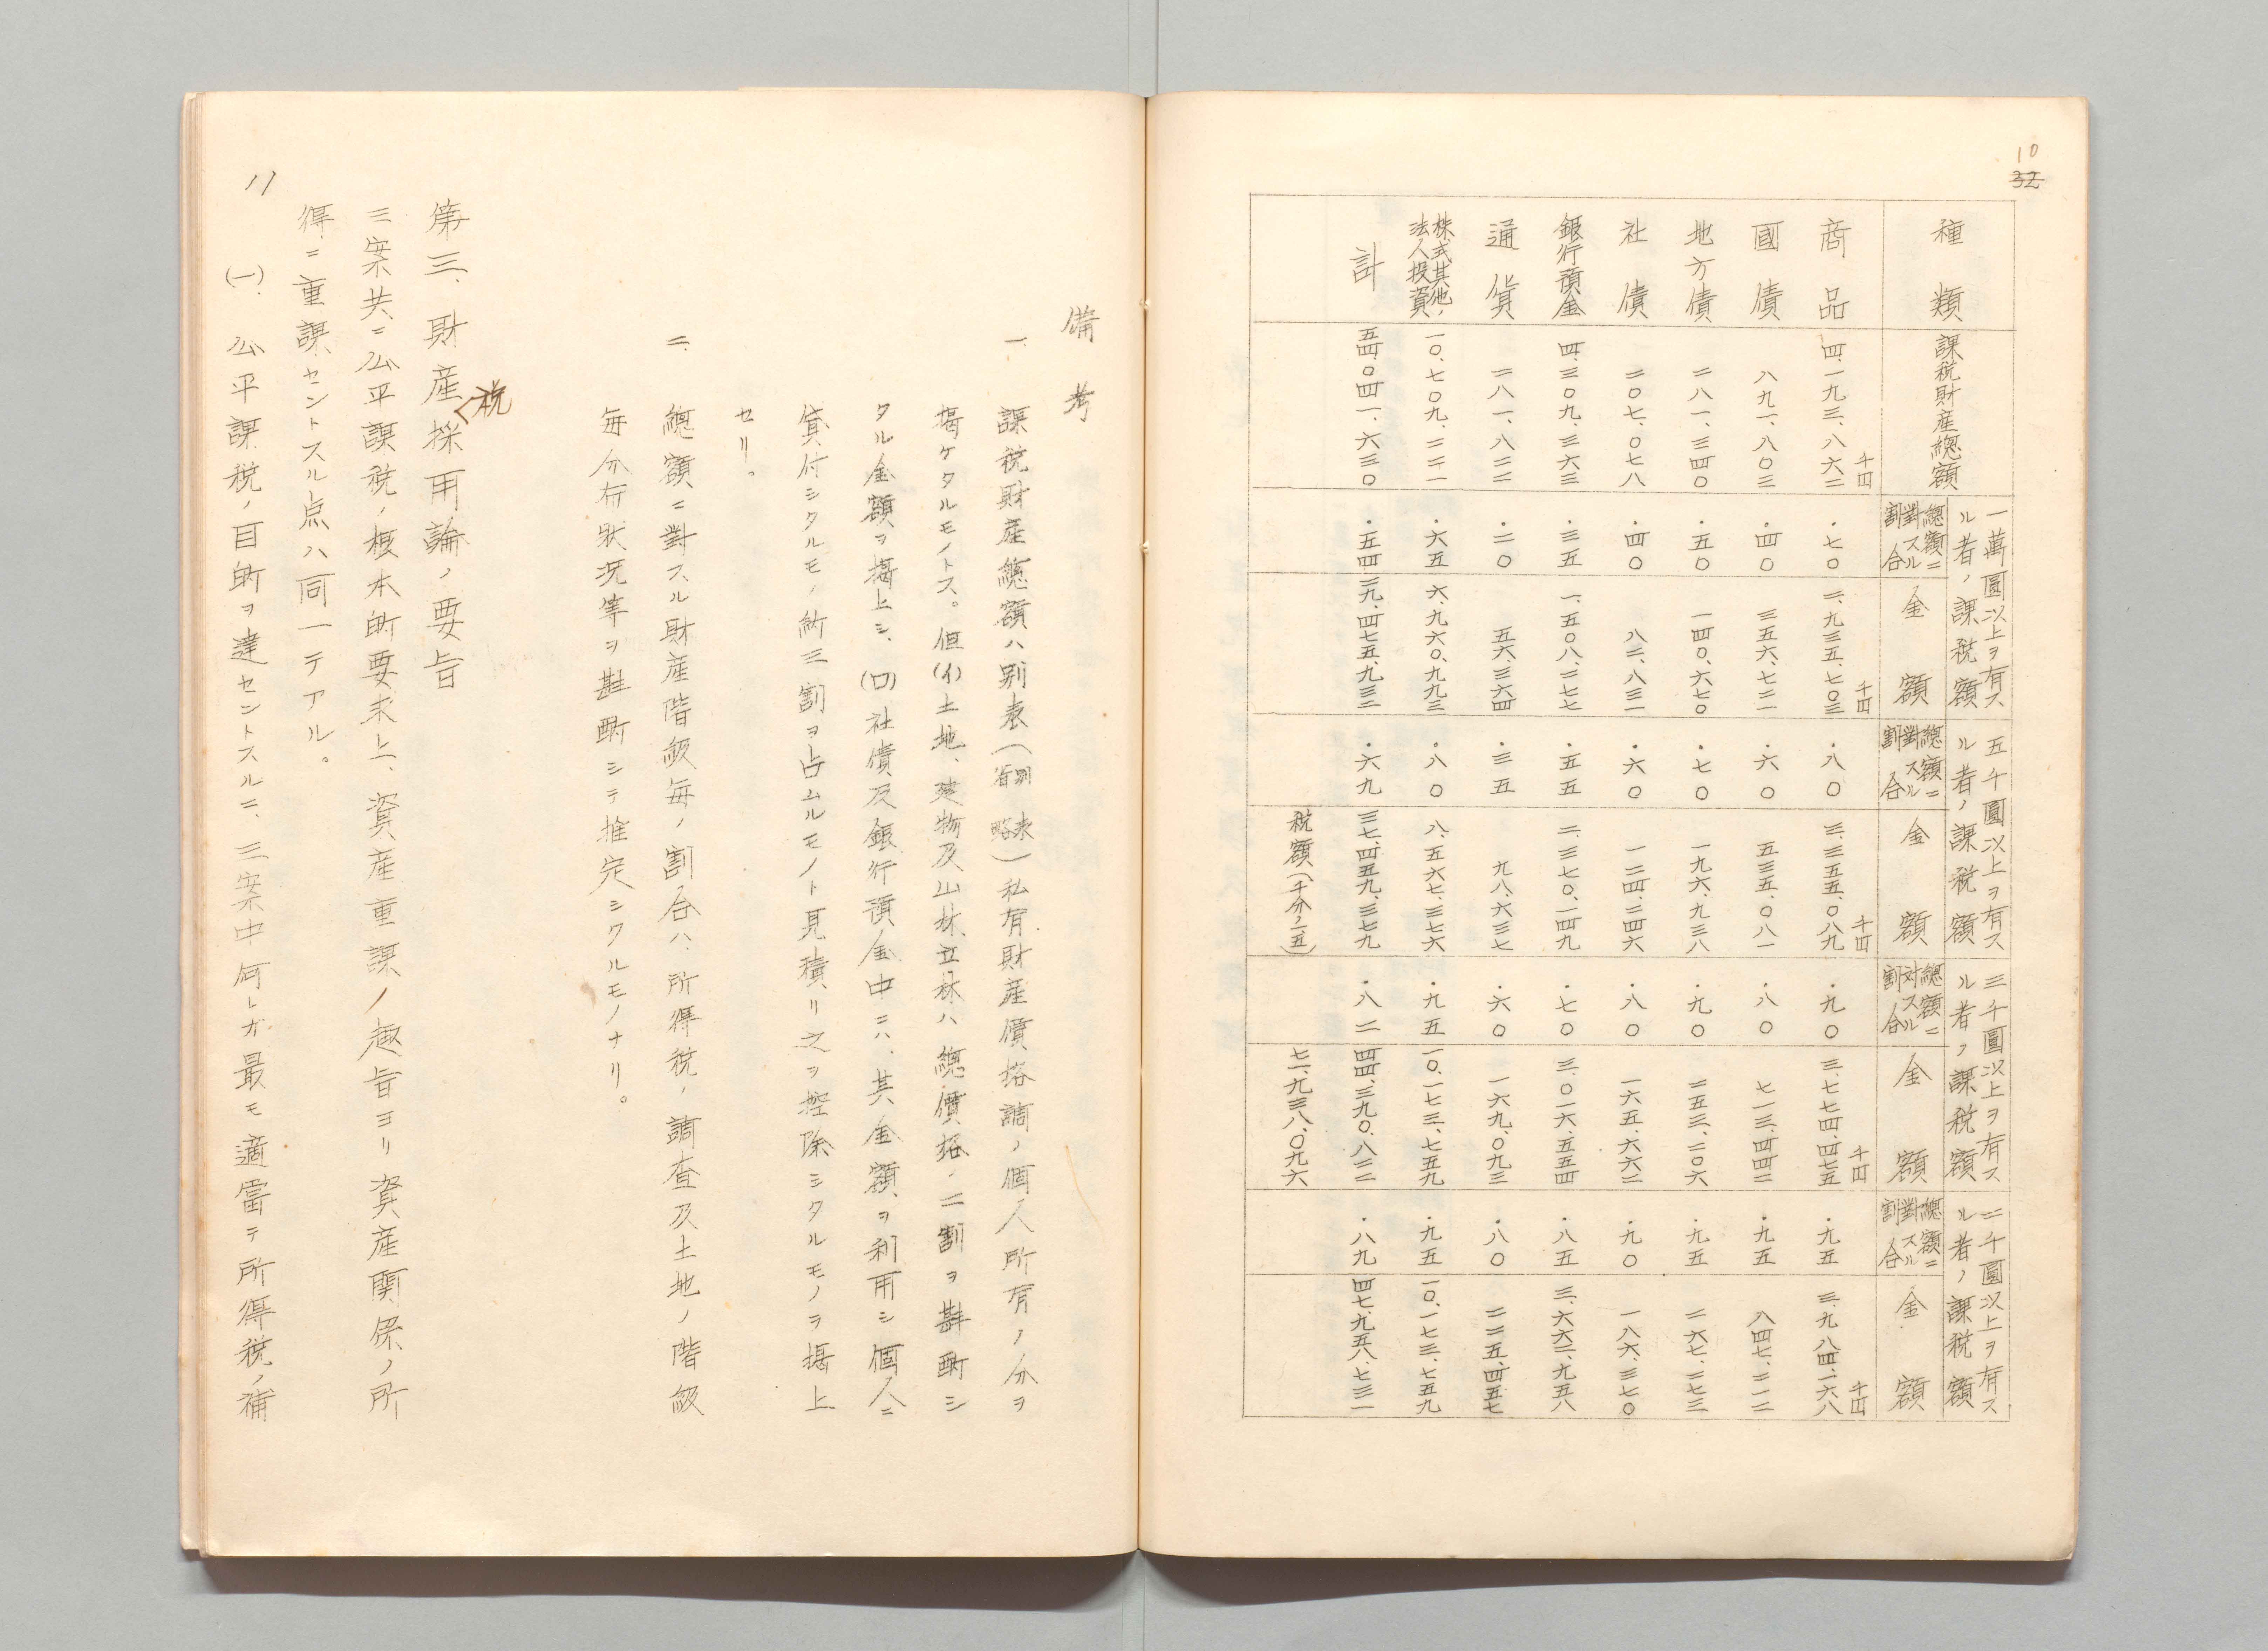 10
32
種類 課税財産總額 一萬圓以上ヲ有スル者ノ課税額 五千圓以上ヲ有スル者ノ課税額 三千圓以上ヲ有スル者ノ課税額 二千圓以上ヲ有スル者ノ課税額
總額ニ對スル割合 金額 總額ニ對スル割合 金額 總額ニ対スル割合 金額 總額ニ對スル割合 金額
千円 千円 千円 千円 千円
商品 四、一九三、八六二 ・七〇 二、九三五、七〇三 ・八〇 三、三五五、〇八九 ・九〇 三、七七四、四七五 ・九五 三、九八四、一六八
國債 八九一、八〇三 ・四〇 三五六、七二一 ・六〇 五三五、〇八一 ・八〇 七一三、四四二 ・九五 八四七、二一二
地方債 二八一、三四〇 ・五〇 一四〇、六七〇 ・七〇 一九六、九三八 ・九〇 二五三、二〇六 ・九五 二六七、二七三
社債 二〇七、〇七八 ・四〇 八二、八三一 ・六〇 一二四、二四六 ・八〇 一六五、六六二 ・九〇 一八六、三七〇
銀行預金 四、三〇九、三六三 ・三五 一、五〇八、二七七 ・五五 二、三七〇、一四九 ・七〇 三、〇一六、五五四 ・八五 三、六六二、九五八
通貨 二八一、八二二 ・二〇 五六、三六四 ・三五 九八、六三七 ・六〇 一六九、〇九三 ・八〇 二二五、四五七
株式其他ノ法人投資 一〇、七〇九、二二一 ・六五 六、九六〇、九九三 ・八〇 八、五六七、三七六 ・九五 一〇、一七三、七五九 ・九五 一〇、一七三、七五九
計 五四、〇四一、六三〇 ・五四 二九、四七五、九三三 ・六九 三七、四五九、三七九 ・八二 四四、三九〇、八三二 ・八九 四七、九五八、七三一
税額（千分ノ一五） 七一、九三八、〇九六
備考
一、課税財産總額ハ別表（別表省略）私有財産價格調ノ個人所有ノ分ヲ
掲ケタルモノトス。但(イ)土地、建物及山林立林ハ總價格ノ二割ヲ斟酌シ
タル金額ヲ掲上シ、(ロ)社債及銀行預金中ニハ、其金額ヲ利用シ個人ニ
貸付シタルモノ約三割ヲ占ムルモノト見積リ之ヲ控除シタルモノヲ掲上
セリ。
二、總額ニ對スル財産階級毎ノ割合ハ、所得税ノ調査及土地ノ階級
毎分布狀況等ヲ斟酌シテ推定シタルモノナリ。
第三、財産税採用論ノ要旨
三案共ニ公平課税ノ根本的要求上、資産重課ノ趣旨ヨリ資産関係ノ所
得ニ重課セントスル点ハ同一テアル。
(一)、公平課税ノ目的ヲ達セントスルニ、三案中何レガ最モ適當テ所得税ノ補
11